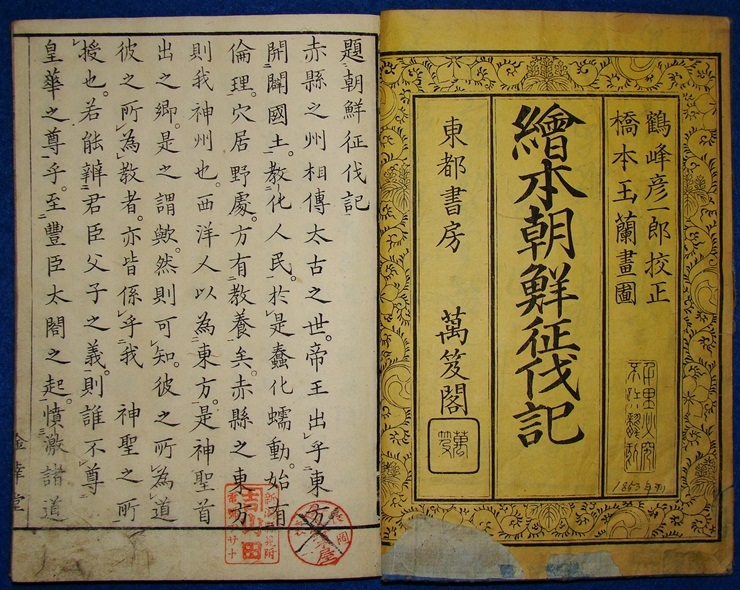 鶴峰彦一郎挍正
橋本玉蘭畫圖
1853年刊
繪本朝鮮征伐記
東都書房 萬笈閣
萬笈
題朝鮮征伐記
赤縣之州相傳太古之世。帝王出乎東方
開闢國土。教化人民。於是蠢化蠕動。始有
倫理。穴居野處。方有教養矣。赤縣之東方
則我神州也。西洋人以為東方。是神聖首
出之鄉。是之謂歟。然則可知。彼之所為道
彼之所為教者。亦皆係乎我 神聖之所
授也。若能辨君臣父子之義。則誰不尊
皇華之尊乎。至豐臣太閤之起。憤激諸道